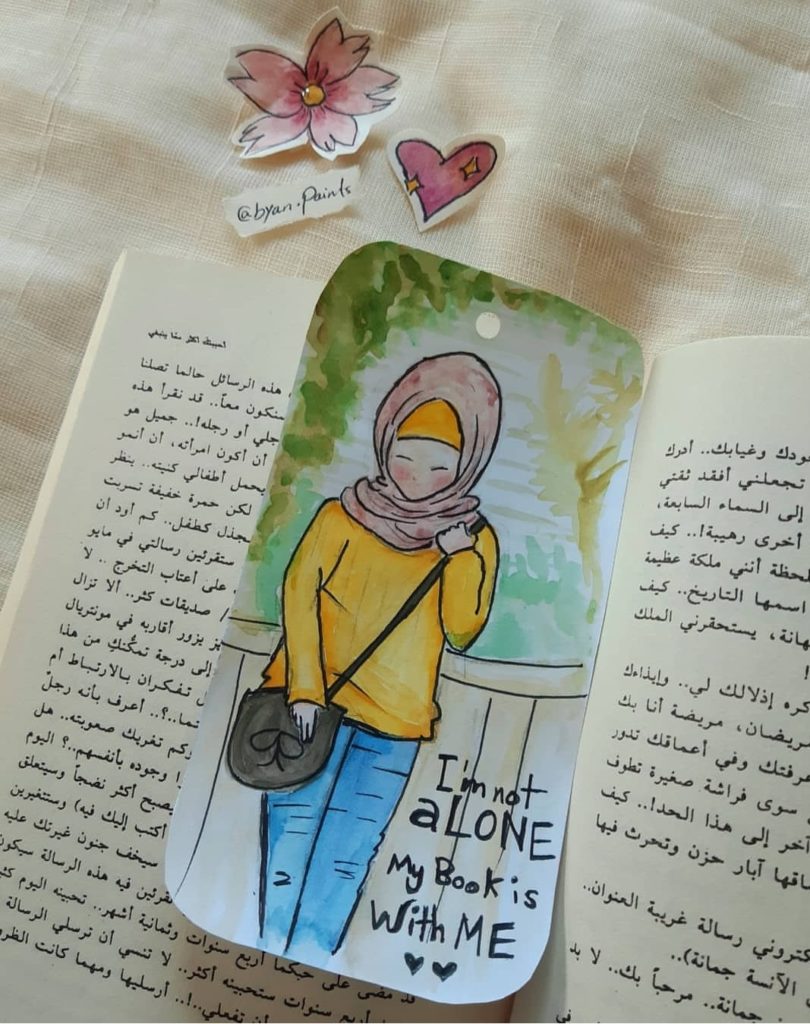 @byan.paints
أحببتك أكثر مما ينبغي
هذه الرسائل حالما تصلنا
سنكون معاً.. قد نقرأ هذه
جلي أو رجله!.. جميل هو
أن أكون امرأته، أن أنمو
يحمل أطفالي كنيته.. ينظر
لكن حمرة خفيفة تسربت
كطفل.. كم أود أن
ستقرئين رسالتي في مايو
على أعتاب التخرج .. لا
صديقات كثر.. ألا تزال
يزور أقاربه في مونتريال
إلى درجة تمكنك من هذا
تفكران بالارتباط أم
أعرف بأنه رجل
تغريك صعوبته.. هل
وجوده بأنفسهم..؟ اليوم
أكثر نضجاً وسيتعلق
أكتب إليك فيه) وستتغيرين
سيخف جنون غيرتك عليه
فيه هذه الرسالة سيكون
أربع سنوات وثمانية أشهر.. تحبينه اليوم
قد مضى على حبكما أربع سنوات
أربع سنوات ستحبينه أكثر.. لا تنسي أن ترسلي الرسالة
أن تفعلي..!.. أرسليها ومهما كانت
I'm not
aLONE
My Book is
With ME
وغيابك.. أدرك
تجعلني أفقد ثقتي
إلى السماء السابعة،
أخرى رهيبة!.. كيف
لحظة أنني ملكة عظيمة
اسمها التاريخ.. كيف
يستحقرني الملك
إذلالك لي.. وإيذاءك
مريضة أنا بك
وفي أعماقك تدور
سوى فراشة صغيرة تطوف
آخر إلى هذا الحد!.. كيف
آبار حزن وتحرث فيها
رسالة غريبة العنوان..
الآنسة جمانة)..
جمانة.. مرحباً بك.. لا بد
في